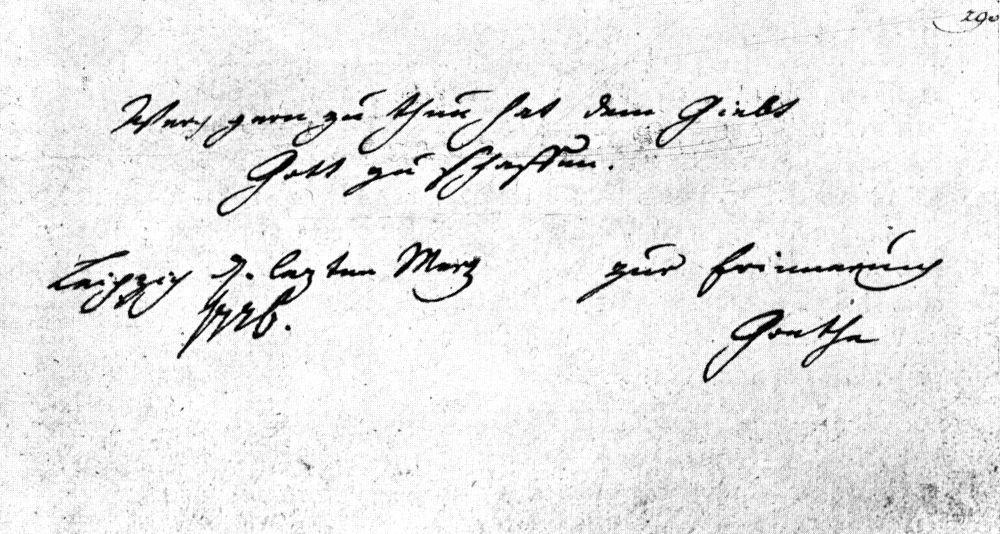 290
Wers gern zu thun hat dem Giebt
Gott zu schaffen.
Leipzig d. lezten Merz zur Erinnerung
1776. Goethe